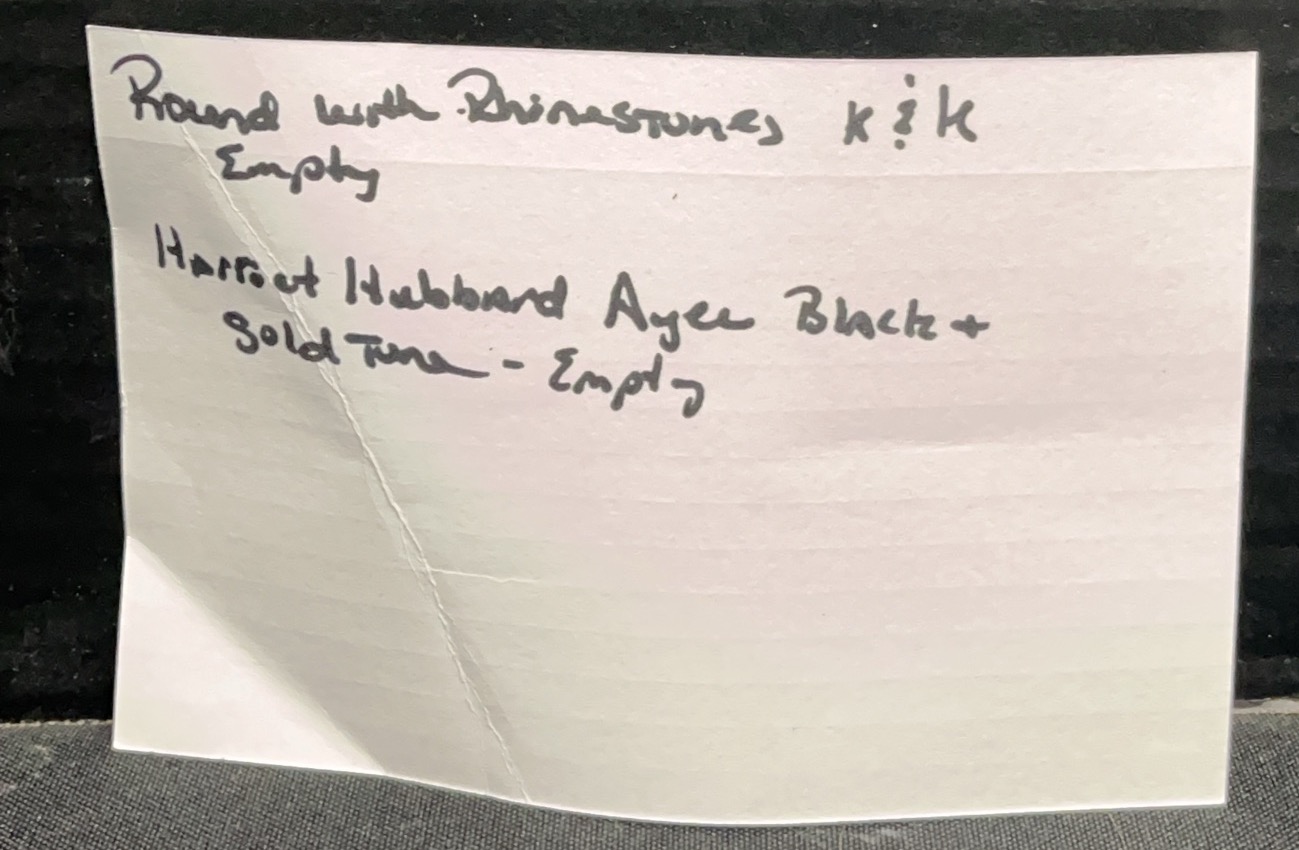 Round with Rhinestones K & K
Empty
Harriet Hubbard Ayer Black +
Gold Tone - Empty